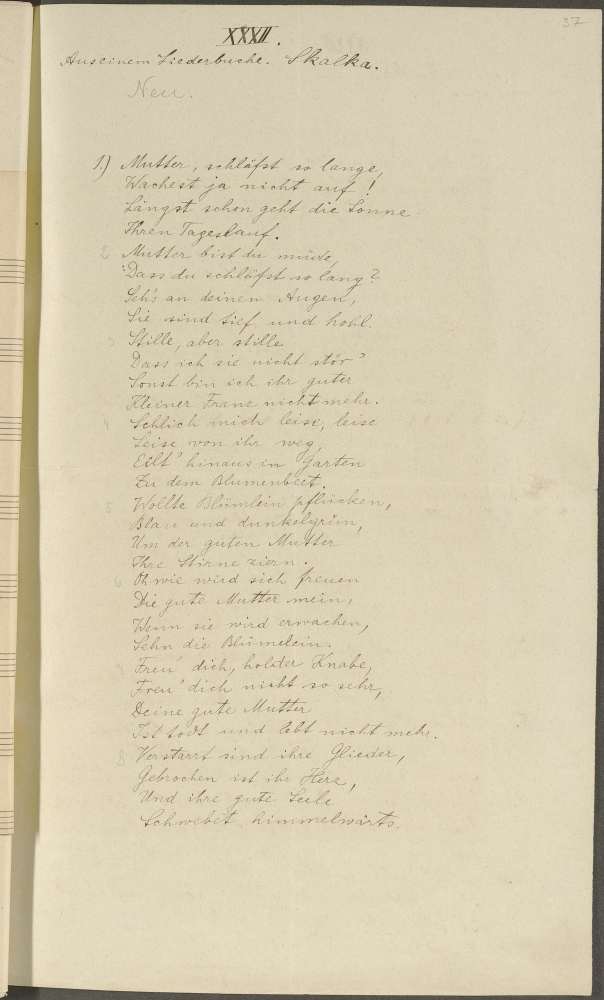 37
XXXII.
Aus einem Liederbuche. Skalka.
Neu.
1.) Mutter, schläfst so lange,
Wachest ja nicht auf!
Längst schon geht die Sonne
Ihren Tageslauf.
2 Mutter bist du müde,
Dass du schläfst so lang?
Seh's an deinen Augen,
Sie sind tief und hohl.
3 Stille, aber stille
Dass ich sie nicht stör'
Sonst bin ich ihr guter
Kleiner Franz nicht mehr.
4 Schlich mich leise, leise
Leise von ihr weg,
Eilt' hinaus in Garten
Zu dem Blumenbeet.
5 Wollte Blümlein pflücken,
Blau und dunkelgrün,
Um der guten Mutter
Ihre Stirne ziern.
6 Oh wie wird sich freuen
Die gute Mutter mein,
Wenn sie wird erwachen,
Sehn die Blümelein.
Freu' dich, holder Knabe,
Freu' dich nicht so sehr,
Deine gute Mutter
Ist todt und lebt nicht mehr.
8 Verstarrt sind ihre Glieder,
Gebrochen ist ihr Herz,
Und ihre gute Seele
Schwebet himmelwärts.